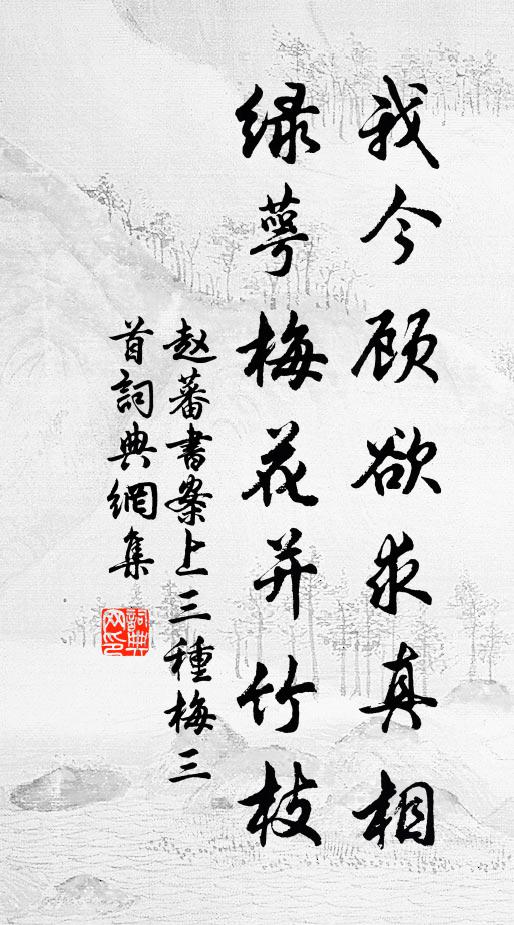 我今顾欲求真相
绿萼梅花并竹枝
赵蕃書案上三種梅三
首詞典網集
詞典
网印